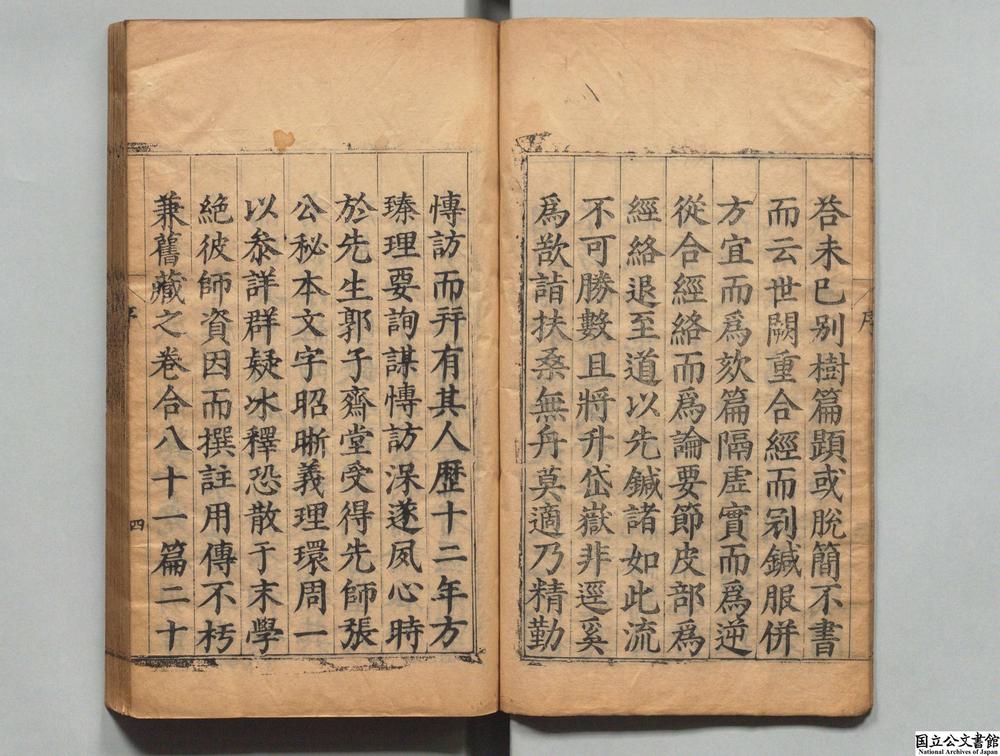 荅未已别樹篇題或脫簡不書
而云世闕重合經而冠鍼服併
方宜而爲欬篇隔虛實而爲逆
從合經絡而爲論要節皮部爲
經絡退至道以先鍼諸如此流
不可勝數且將升岱嶽非逕奚
爲欲詣扶桑無舟莫適乃精勤
慱訪而幷有其人歷十二年方
臻理要詢謀慱訪深遂夙心時
於先生郭子齋堂受得先師張
公秘本文字昭晰義理環周一
以叅詳群疑冰釋恐散于末學
絶彼師資因而撰註用傳不朽
兼舊藏之卷合八十一篇二十
序
四
序
国立公文書館
National Archives of Japan